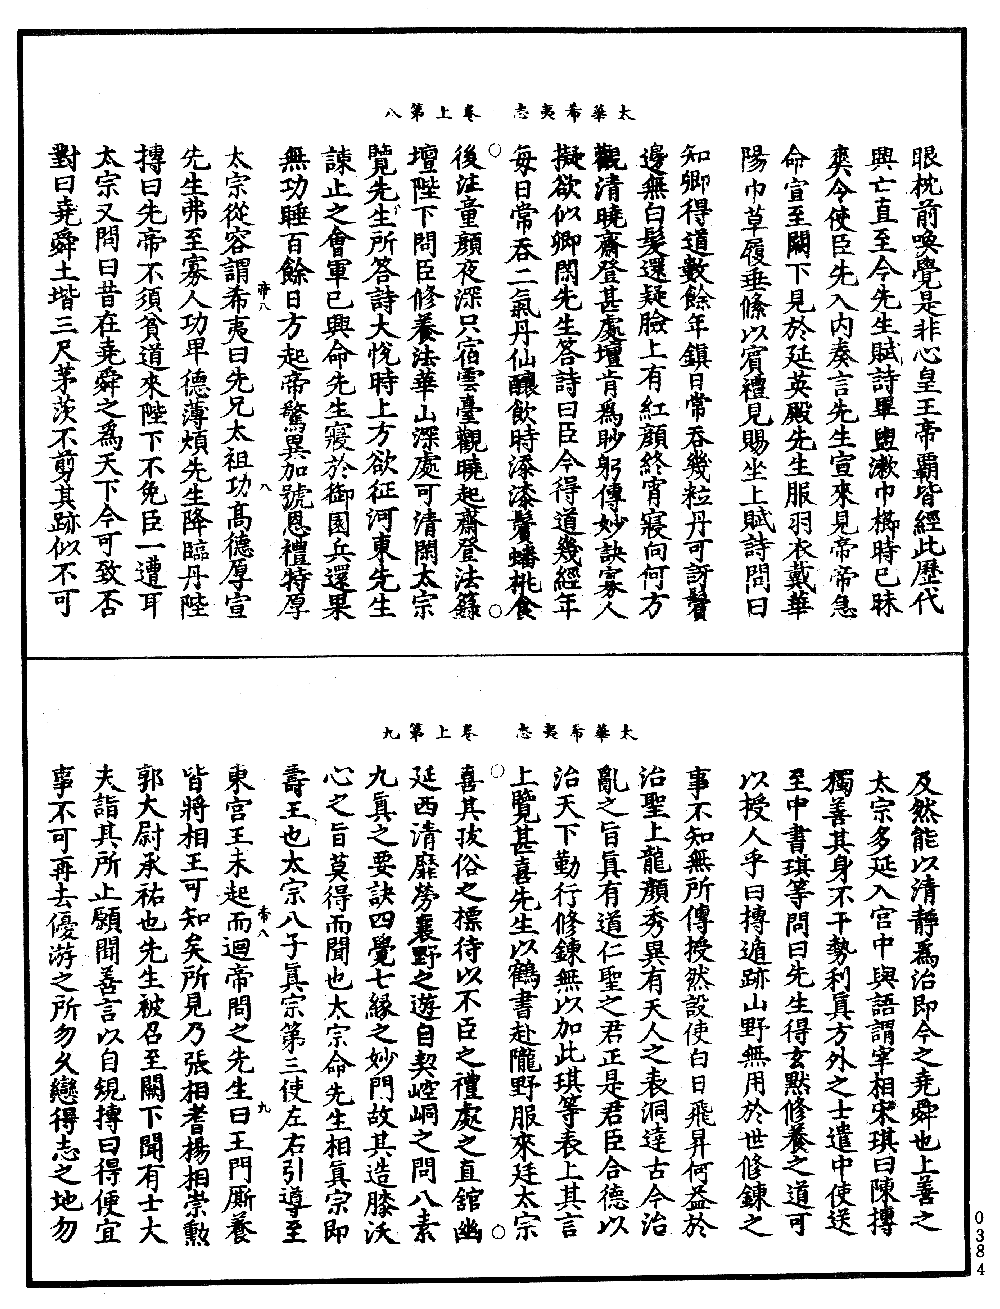 太華希夷志　卷上第八
眼枕前喚覺是非心皇王帝霸皆經此歷代
興亡直至今先生賦詩畢盥漱巾櫛時已昧
爽令使臣先入内奏言先生宣來見帝帝急
命宣至闕下見於延英殿先生服羽衣戴華
陽巾草履垂絛以賓禮見賜坐上賦詩問曰
知卿得道數餘年鎮日常吞幾粒丹可訝鬢
邊無白髮還疑臉上有紅顔終宵寢向何方
觀清曉齋登甚處壇肯爲眇躬傳妙訣寡人
擬欲似卿閑先生答詩曰臣今得道幾經年
每日常吞二氣丹仙釀飲時添漆鬢蟠桃食
後注童顔夜深只宿雲臺觀曉起齋登法籙
壇陛下問臣修養法華山深處可清閑太宗
覽先生所答詩大悅時上方欲征河東先生
諫止之會軍已興命先生寢於御園兵還果
無功睡百餘日方起帝驚異加號恩禮特厚
太宗從容謂希夷曰先兄太祖功高德厚宣
先生弗至寡人功卑德薄煩先生降臨丹陛
摶曰先帝不須貧道來陛下不免臣一遭耳
太宗又問曰昔在堯舜之爲天下今可致否
對曰堯舜土堦三尺茅茨不剪其跡似不可
帝八
八
太華希夷志　卷上第九
及然能以清靜爲治即今之堯舜也上善之
太宗多延入宫中與語謂宰相宋琪曰陳摶
獨善其身不干勢利真方外之士遣中使送
至中書琪等問曰先生得玄默修養之道可
以授人乎曰摶遁跡山野無用於世修鍊之
事不知無所傳授然設使白日飛昇何益於
治聖上龍顔秀異有天人之表洞達古今治
亂之旨真有道仁聖之君正是君臣合德以
治天下勤行修鍊無以加此琪等表上其言
上覽甚喜先生以鶴書赴隴野服來廷太宗
喜其拔俗之標待以不臣之禮處之直舘幽
延西清靡勞襄野之遊自契崆峒之問八素
九真之要訣四覺七緣之妙門故其造膝沃
心之旨莫得而聞也太宗命先生相真宗即
壽王也太宗八子真宗第三使左右引導至
東宫王未起而迴帝問之先生曰王門廝養
皆將相王可知矣所見乃張相耆楊相崇勲
郭大尉承祐也先生被召至闕下聞有士大
夫詣其所止願聞善言以自規摶曰得便宜
事不可再去優游之所勿久戀得志之地勿
帝八
九
0384